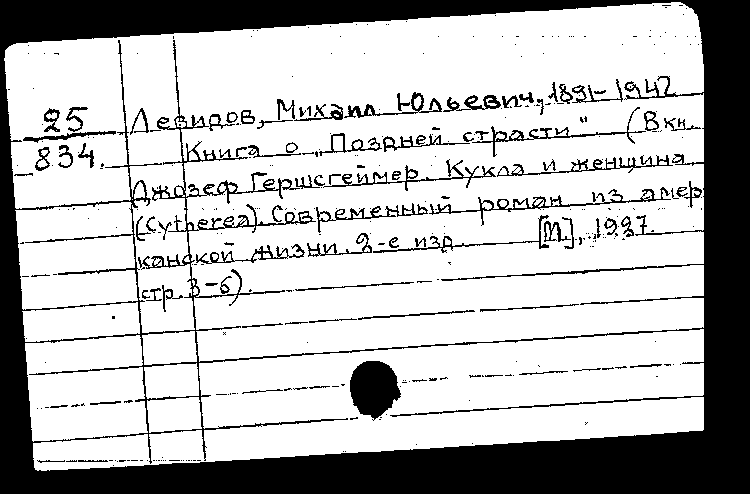 25
834.
Левидов, Михаил Юльевич, 1891-1942
Книга о „Поздней страсти" (В кн.
Джозеф Гершсгеймер. Кукла и женщина
(Cytherea). Современный роман из амер
канской жизни. 2-е изд. [М.], 1927.
стр. 3-6).